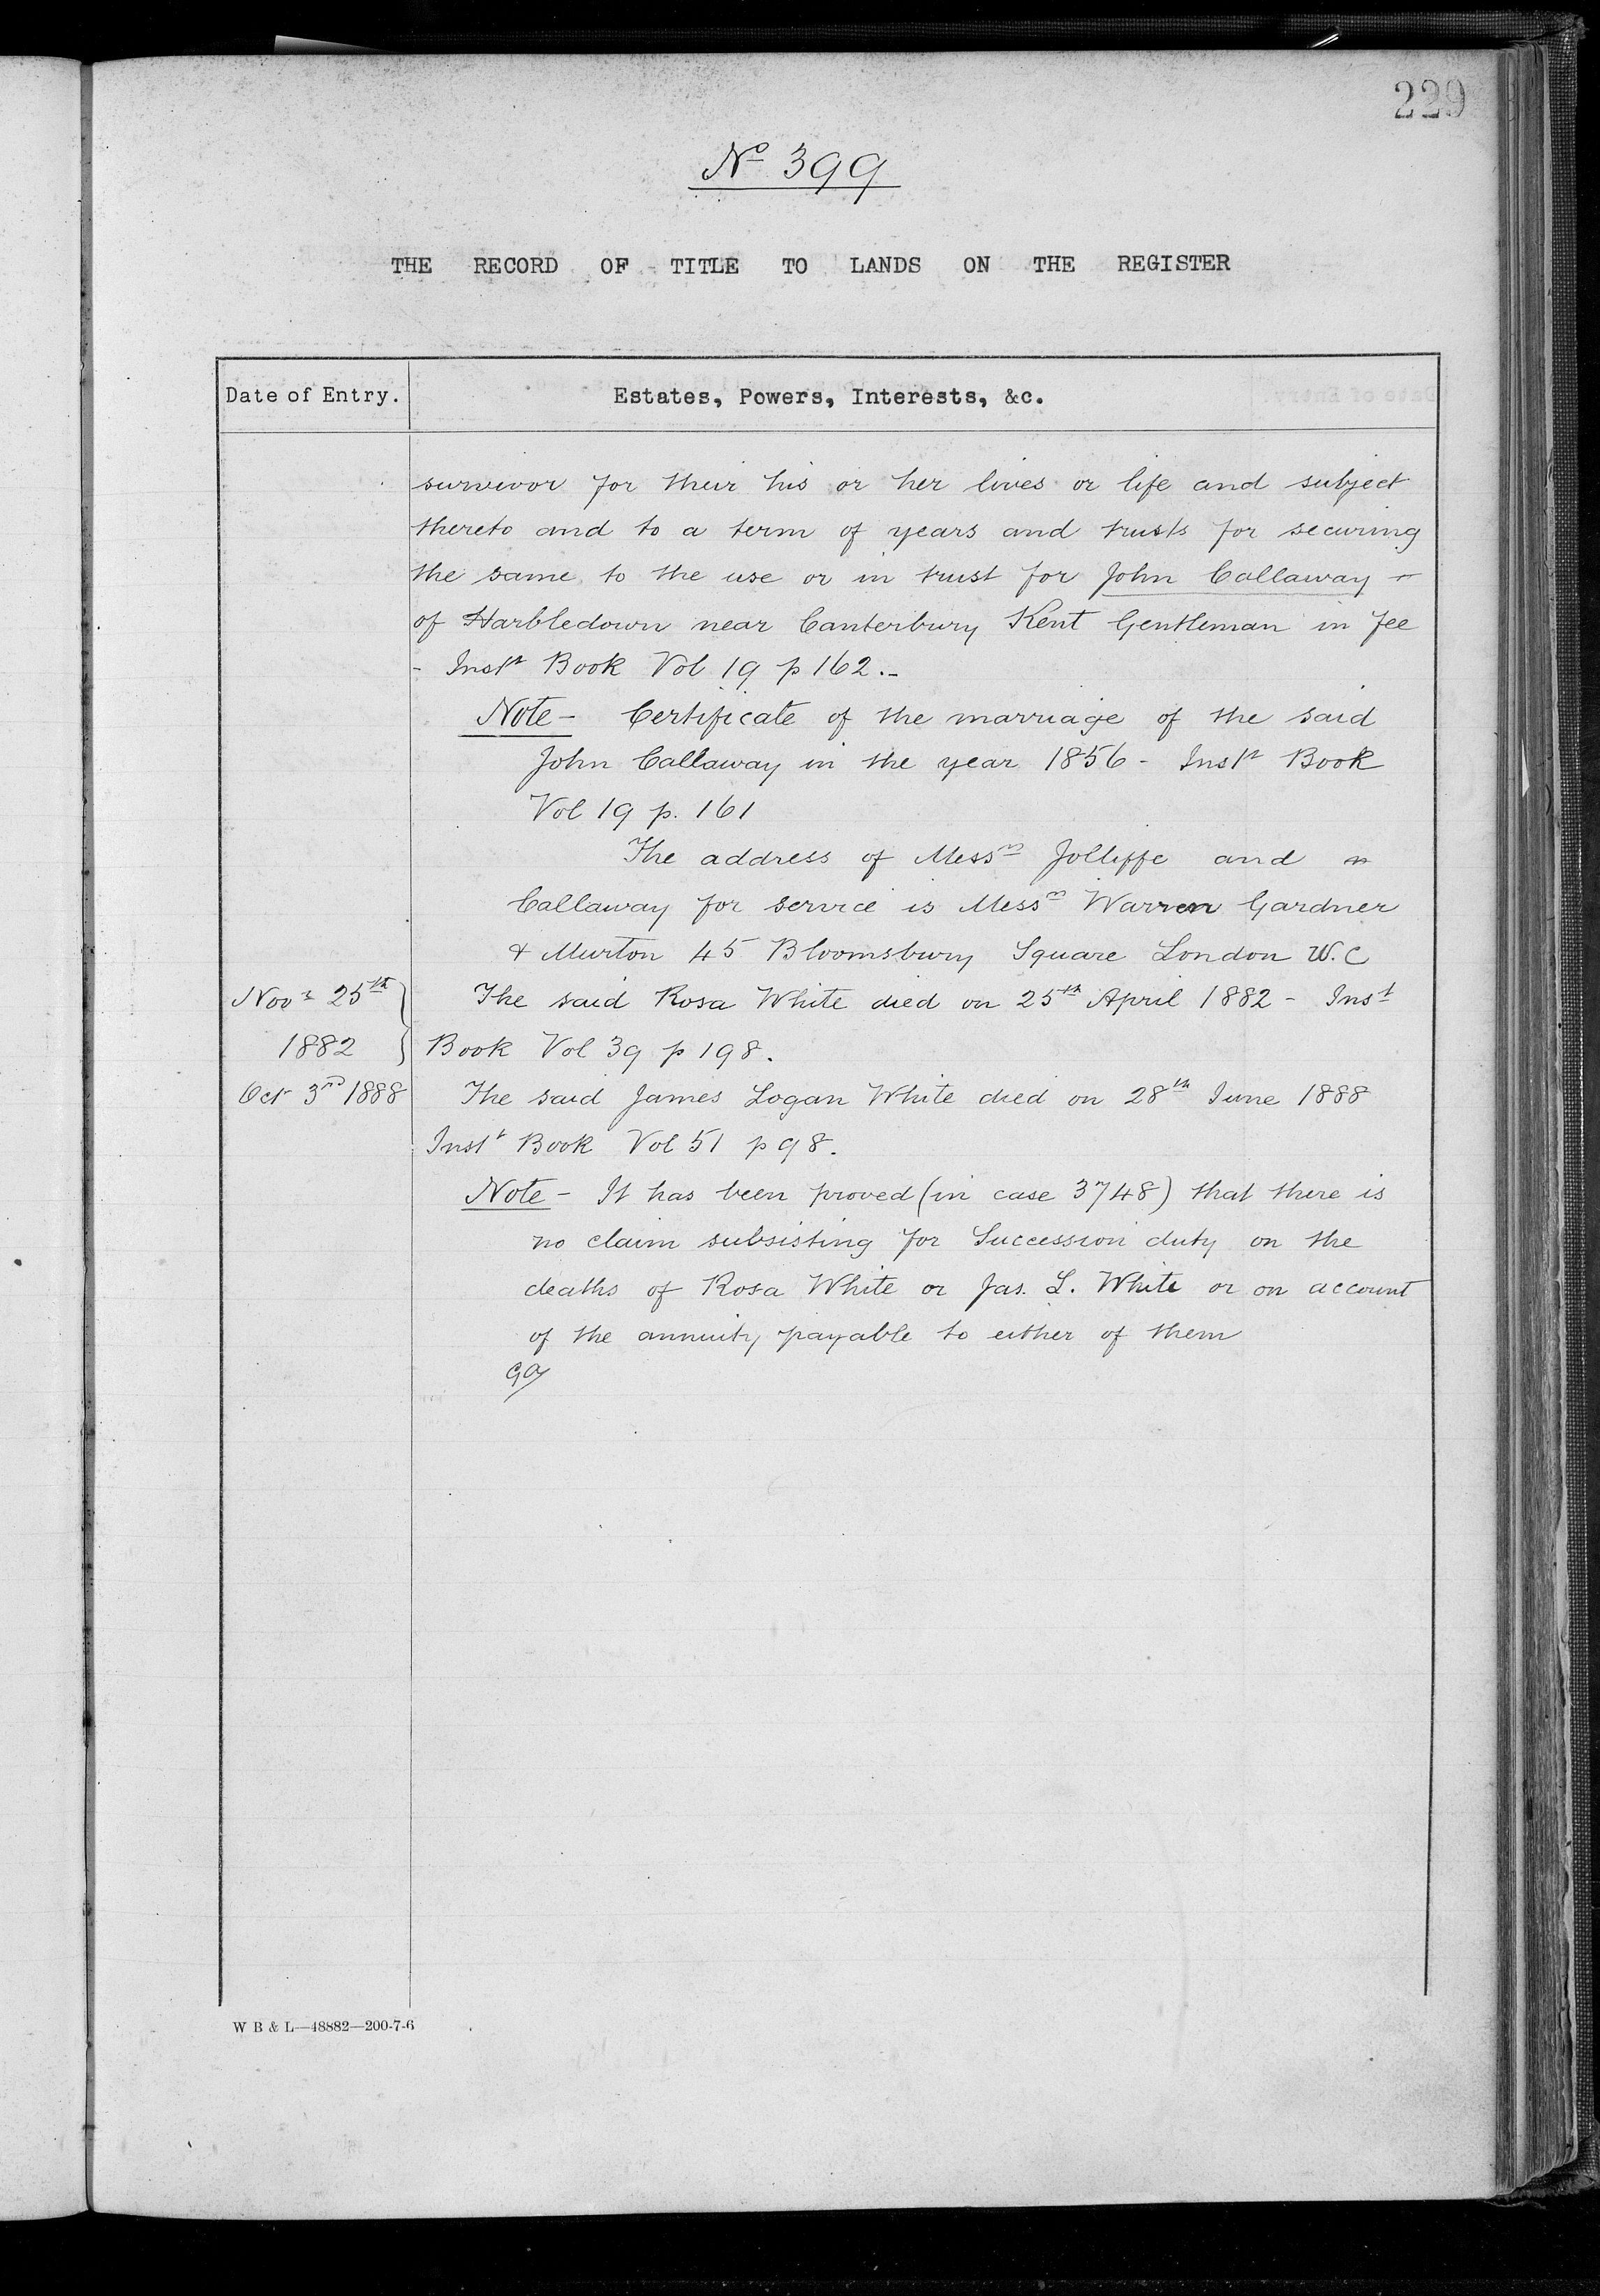 229
No 399
THE RECORD OF TITLE TO LANDS ON THE REGISTER
Date of Entry. Estates, Powers, Interests, &c.
survivor for their his or her lives or life and subject
thereto and to a term of years and trusts for securing
the same to the use or in trust for John Callaway –
of Harbledown near Canterbury Kent Gentleman in fee
- Instt Book Vol 19 p 162.-
Note - Certificate of the marriage of the said
John Callaway in the year 1856 - Instt Book
Vol 19 p. 161
The address of Messrs Jolliffe and
Callaway for service is Messrs Warren Gardner
& Murton 45 Bloomsbury Square London W.C
Novr 25th The said Rosa White died on 25th April 1882 - Inst
1882 Book Vol 39 p 198.
Oct 3rd 1888 The said James Logan White died on 28th June 1888
Instt Book Vol 51 p 98.
Note - It has been proved (in case 3748) that there is
no claim subsisting for Succession duty on the
deaths of Rosa White or Jas. L. White or on account
of the annuity payable to either of them
W B & L—48882—200-7-6